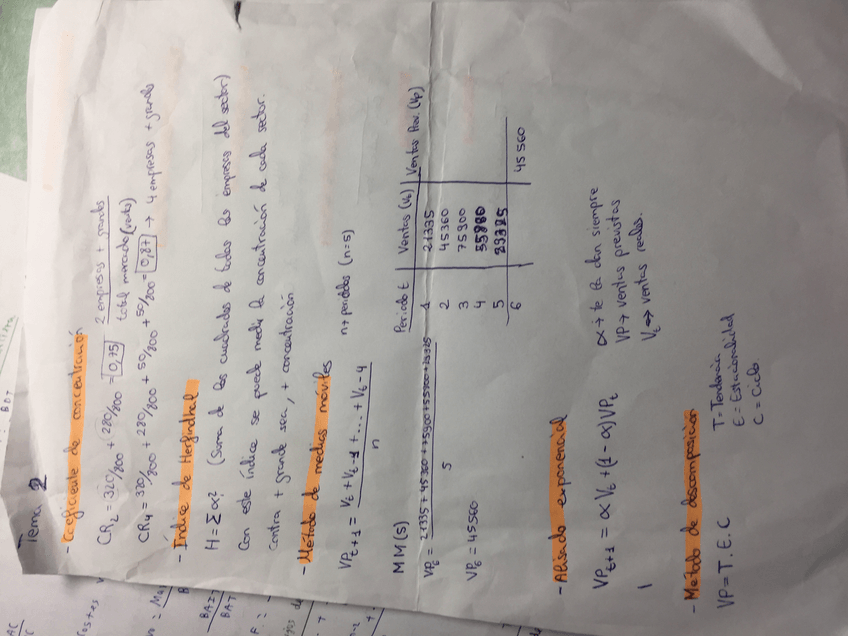 Tema 2
- Coeficiente de concentración
CR2 = 320/800 + 280/800 = 0,75 2 empresas + grandes
total mercado (ventas)
CR4 = 320/800 + 280/800 + 50/800 + 50/800 = 0,87 → 4 empresas + grands
- Índice de Herfindhal
H = Σ α² (Suma de los cuadrados de todas las empresas del sector)
Con este índice se puede medir la concentración de cada sector.
contra + grande sea, + concentración
- Método de medias móviles
VPt+1 = Vt + Vt-1 + ... + Vt-4 n → periodos (n=5)
n
MM(5)
VP6 = 21335 + 45360 + 75900 + 55880 + 29325
5
VP6 = 45560
Periodo t Ventas (Vt) Ventas Prev. (Vp)
1 21335
2 45360
3 75900
4 55880
5 29325
6 45560
- Alisado exponencial
VPt+1 = α Vt + (1 - α) VPt
α → te la dan siempre
VP → ventas previstas
Vt → ventas reales.
- Método de descomposición
VP = T. E. C
T = Tendencia
E = Estacionalidad
C = Ciclo.